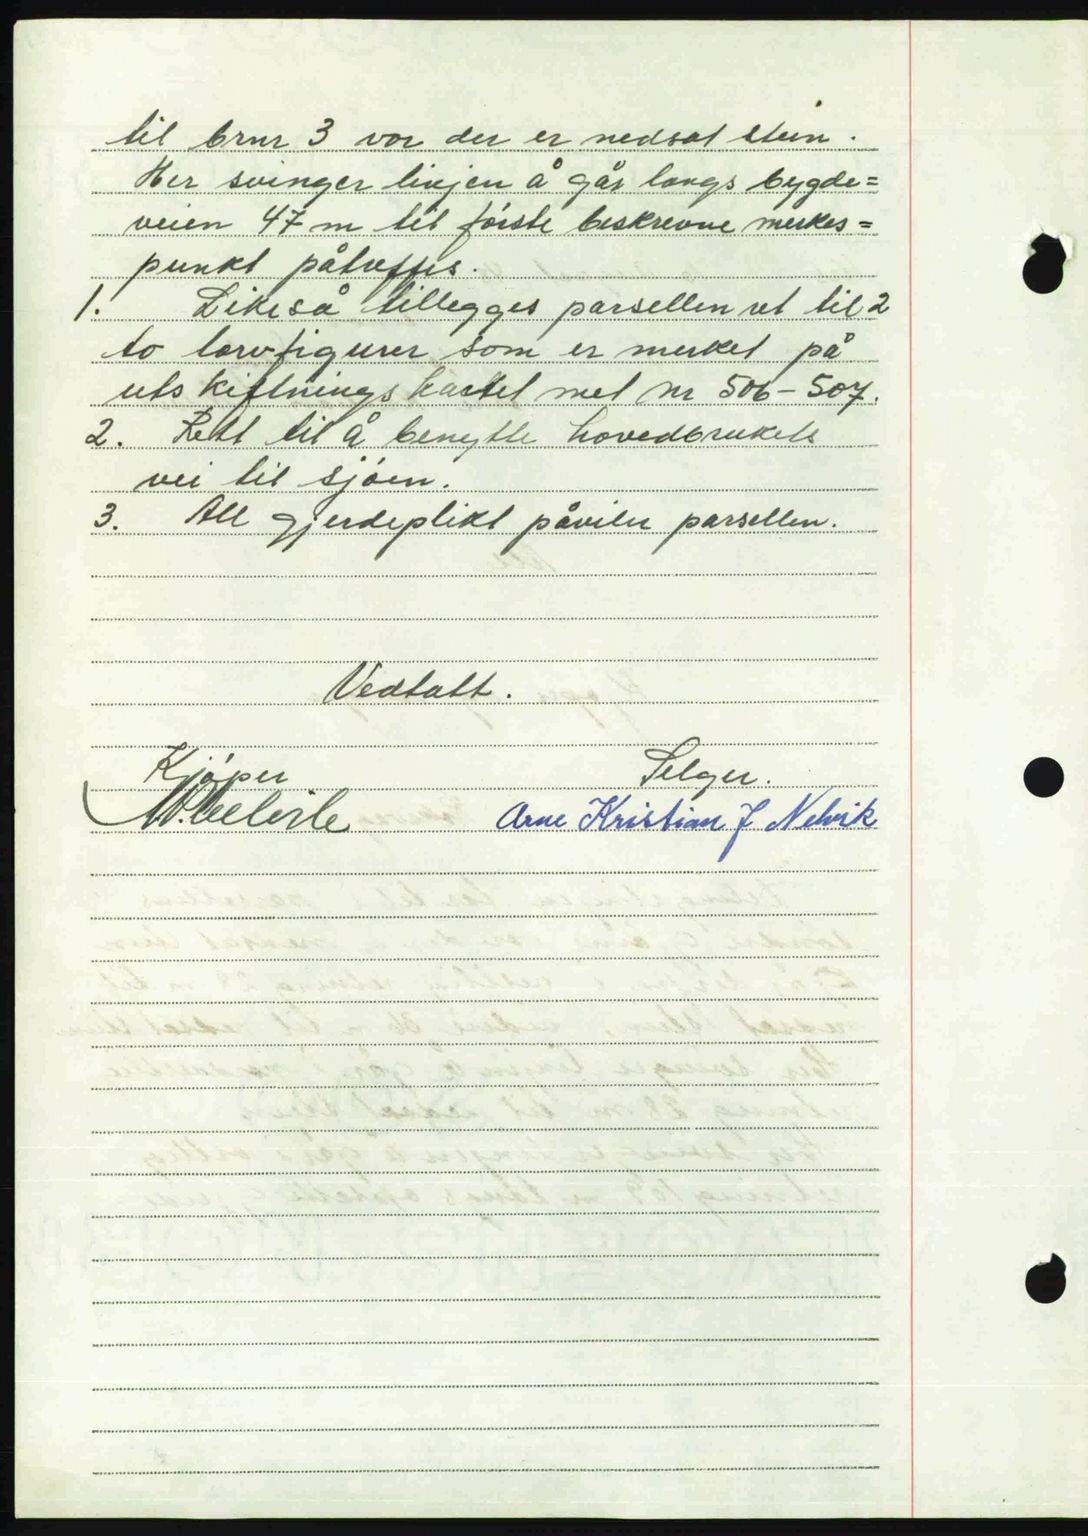 til brnr 3 vor der er nedsat stein.
Her svinger linjen å går langs bygde=
veien 47 m til förste beskrevne merkes=
punkt påtreffes.
1. Likeså tillegges parsellen ret til 2
to torvfigurer som er merket på
utskiftningskartet met nr 506-507.
2. Rett til å benytte hovedbrukets
vei til sjöen.
3. All gjerdeplikt påviler parsellen.
Vedtatt.
Kjöper Selger.
Arne Kristian J Nelvik